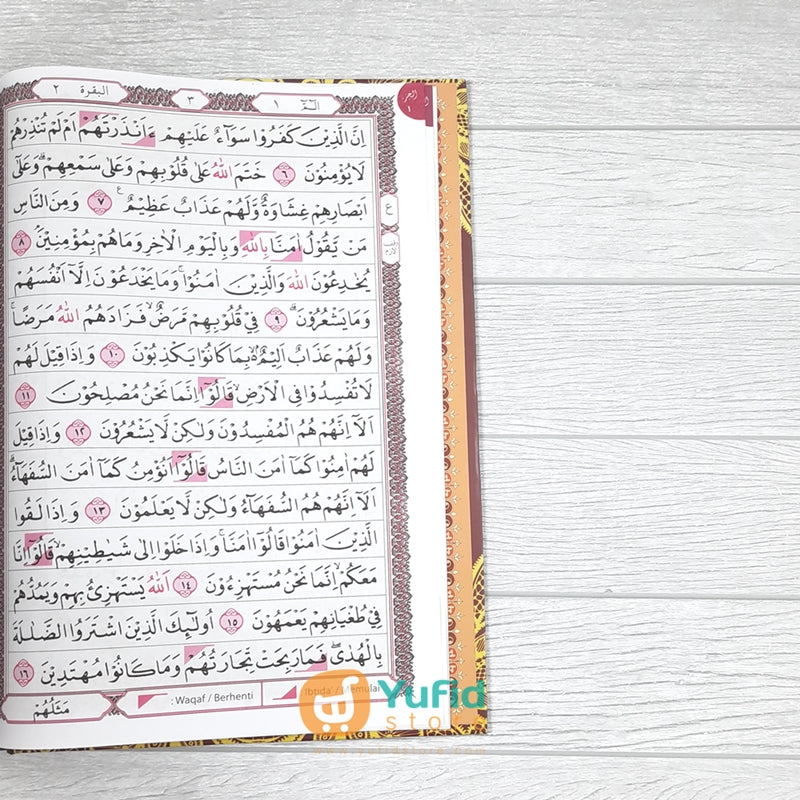 البقرة ٢
٣
الۤمّۤ ١
اِنَّ الَّذِيْنَ كَفَرُوْا سَوَاۤءٌ عَلَيْهِمْ ءَاَنْذَرْتَهُمْ اَمْ لَمْ تُنْذِرْهُمْ
لَا يُؤْمِنُوْنَ ٦ خَتَمَ اللّٰهُ عَلٰى قُلُوْبِهِمْ وَعَلٰى سَمْعِهِمْ ۗ وَعَلٰٓى
اَبْصَارِهِمْ غِشَاوَةٌ وَّلَهُمْ عَذَابٌ عَظِيْمٌ ٧ وَمِنَ النَّاسِ
مَنْ يَّقُوْلُ اٰمَنَّا بِاللّٰهِ وَبِالْيَوْمِ الْاٰخِرِ وَمَا هُمْ بِمُؤْمِنِيْنَ ۘ ٨
يُخٰدِعُوْنَ اللّٰهَ وَالَّذِيْنَ اٰمَنُوْا ۚ وَمَا يَخْدَعُوْنَ اِلَّآ اَنْفُسَهُمْ
وَمَا يَشْعُرُوْنَ ۗ ٩ فِيْ قُلُوْبِهِمْ مَّرَضٌ ۙ فَزَادَهُمُ اللّٰهُ مَرَضًا ۚ
وَلَهُمْ عَذَابٌ اَلِيْمٌ ۢ ۙ بِمَا كَانُوْا يَكْذِبُوْنَ ١٠ وَاِذَا قِيْلَ لَهُمْ
لَا تُفْسِدُوْا فِى الْاَرْضِ ۙ قَالُوْٓا اِنَّمَا نَحْنُ مُصْلِحُوْنَ ١١
اَلَآ اِنَّهُمْ هُمُ الْمُفْسِدُوْنَ وَلٰكِنْ لَّا يَشْعُرُوْنَ ١٢ وَاِذَا قِيْلَ
لَهُمْ اٰمِنُوْا كَمَآ اٰمَنَ النَّاسُ قَالُوْٓا اَنُؤْمِنُ كَمَآ اٰمَنَ السُّفَهَاۤءُ ۗ
اَلَآ اِنَّهُمْ هُمُ السُّفَهَاۤءُ وَلٰكِنْ لَّا يَعْلَمُوْنَ ١٣ وَاِذَا لَقُوا
الَّذِيْنَ اٰمَنُوْا قَالُوْٓا اٰمَنَّا ۚ وَاِذَا خَلَوْا اِلٰى شَيٰطِيْنِهِمْ ۙ قَالُوْٓا اِنَّا
مَعَكُمْ ۙ اِنَّمَا نَحْنُ مُسْتَهْزِءُوْنَ ١٤ اَللّٰهُ يَسْتَهْزِئُ بِهِمْ وَيَمُدُّهُمْ
فِيْ طُغْيَانِهِمْ يَعْمَهُوْنَ ١٥ اُولٰۤىِٕكَ الَّذِيْنَ اشْتَرَوُا الضَّلٰلَةَ
بِالْهُدٰىۖ فَمَا رَبِحَتْ تِّجَارَتُهُمْ وَمَا كَانُوْا مُهْتَدِيْنَ ١٦
: Waqaf / Berhenti
: Ibtida' / Memulai
مَثَلُهُمْ
Yufid
store
www.yufidstore.com